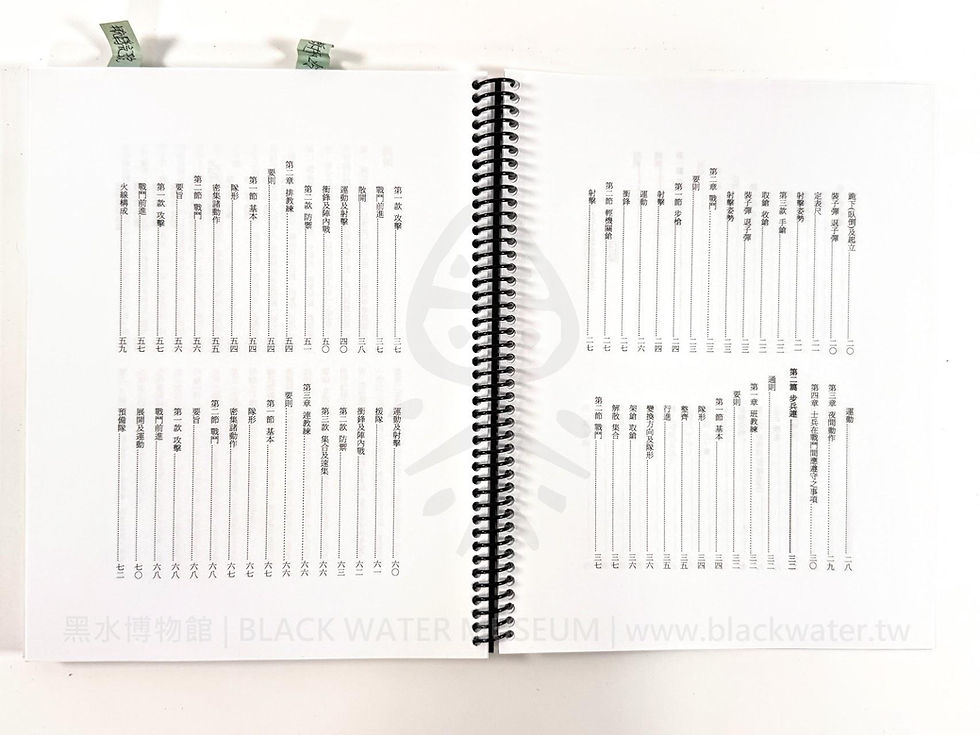 跪下(臥倒)及起立………二〇
裝子彈 退子彈………二〇
定表尺………二一
射擊姿勢………二一
第三款 手鎗………二二
取鎗 收鎗………二二
裝子彈 退子彈………二三
射擊姿勢………二三
第二章 戰鬥………二三
要則………二三
第一節 步槍………二四
射擊………二四
運動………二六
衝鋒………二七
第二節 輕機關鎗………二七
射擊………二七
運動………二八
第三章 夜間動作………二九
第四章 士兵在戰鬥間應遵守之事項………三〇
第二篇 步兵連………三二
通則………三二
第一章 班教練………三三
要則………三三
第一節 基本………三四
隊形………三四
整齊………三五
行進………三五
變換方向及隊形………三六
架鎗 取鎗………三六
解散 集合………三七
第二節 戰鬥………三七
第一款 攻擊………三七
戰鬥前進………三七
散開………三八
運動及射擊………四〇
衝鋒及陣內戰………五〇
第二款 防禦………五一
第二章 排教練………五四
要則………五四
第一節 基本………五四
隊形………五四
密集諸動作………五五
第二節 戰鬥………五六
要旨………五六
第一款 攻擊………五七
戰鬥前進………五七
火線構成………五九
運動及射擊………六〇
援隊………六一
衝鋒及陣內戰………六二
第二款 防禦………六三
第三款 集合及速集………六六
第三章 連教練………六六
要則………六六
第一節 基本………六七
隊形………六七
密集諸動作………六七
第二節 戰鬥………六八
要旨………六八
第一款 攻擊………六八
戰鬥前進………六八
展開及運動………七〇
預備隊………七二
黑水博物館 | BLACK WATER MUSEUM | www.blackwater.tw